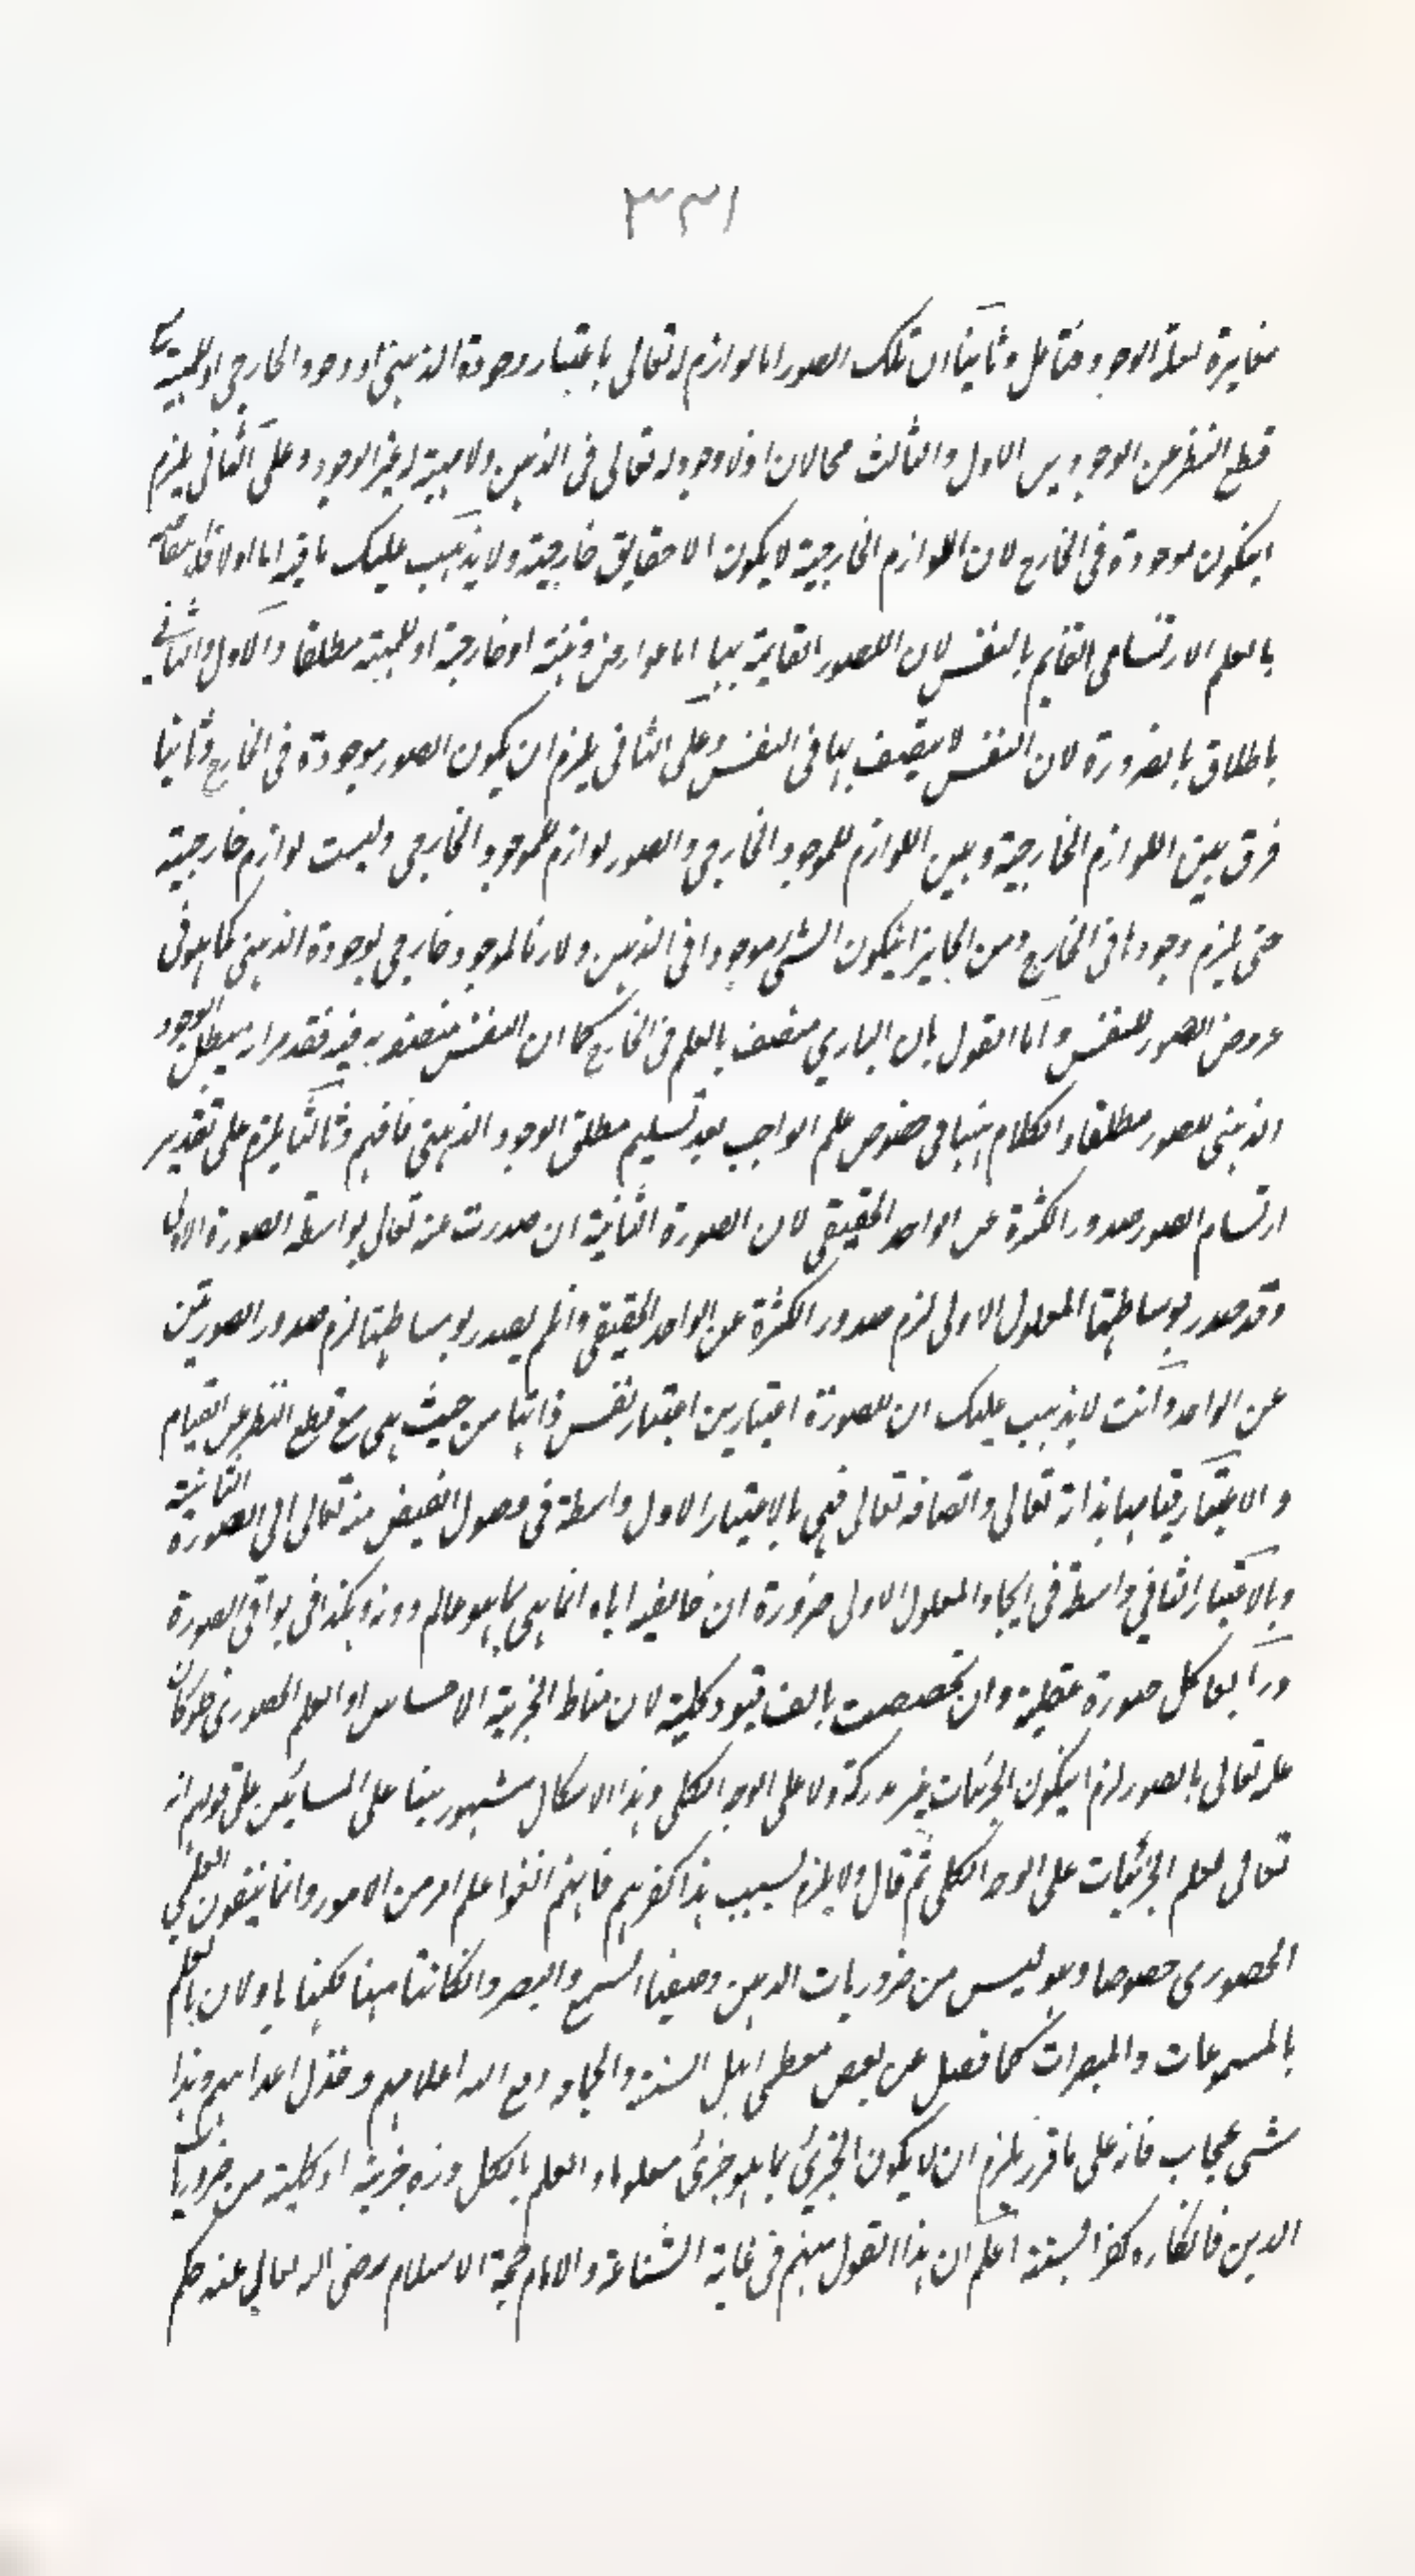 ٣٣١
مغايرة لعلة الوجود فتأمل وثانيا ان تلك الصور اما لوازم له تعالى باعتبار وجوده الذهنى او وجود الخارجي او للمهية مع
قطع النظر عن الوجودين الاول والثالث محالان اذ لا وجود له تعالى فى الذهن ولا مهية له غير الوجود وعلى الثانى يلزم
ان يكون موجودة فى الخارج لان اللوازم الخارجية لا يكون الا حقايق خارجية ولا يذهب عليك ما فيه اما اولا فلانتقاضه
بالعلم الارتسامى القايم بالنفس لان الصور القايمة بها اما عوارض ذهنية او خارجية او للمهية مطلقا والاول والثانى
باطلان بالضرورة لان النفس لا يتصف بها فى النفس وعلى الثانى يلزم ان يكون الصور موجودة فى الخارج وثانيا
فرق بين اللوازم الخارجية وبين اللوازم للموجود الخارجى والصور لوازم للموجود الخارجى وليست لوازم خارجية
حتى يلزم وجودها فى الخارج ومن الجايز ان يكون الشئ موجودا فى الذهن ولازما لموجود خارجى بوجوده الذهنى كما هو فى
عروض الصور للنفس واما القول بان البارى متصف بالعلم فى الخارج كما ان النفس متصفة به فيه فقد مر انه يبطل الوجود
الذهنى للصور مطلقا والكلام ههنا فى خصوص علم الواجب بعد تسليم مطلق الوجود الذهنى فافهم وثالثا يلزم على تقدير
ارتسام الصور صدور الكثرة عن الواحد الحقيقى لان الصورة الثانية ان صدرت عنه تعالى بواسطة الصورة الاولى
وقد صدر بوساطتها المعلول الاولى لزم صدور الكثرة عن الواحد الحقيقى وان لم يصدر بوساطتها لزم صدور الصورتين
عن الواحد وانت لا يذهب عليك ان للصورة اعتبارين اعتبار نفس ذاتها من حيث هى مع قطع النظر عن القيام
والاعتبار قيامها بذاته تعالى واتصافه تعالى فهى بالاعتبار الاول واسطة فى وصول الفيض منه تعالى الى الصورة الثانية
وبالاعتبار الثانى واسطة فى ايجاد المعلول الاولى ضرورة ان خالقيته اياه انما هى بما هو عالم ووزه وهكذا فى بواقى الصورة
ورابعا كل صورة عقلية وان تخصصت بالف قيود كلية لان مناط الجزئية الاحساس او العلم الحضورى فلو كان
علمه تعالى بالصور لزم ان يكون الجزئيات غير مدركة ولا على الوجه الكلى وهذا الاشكال مشهور بينا على المشائين على قولهم انه
تعالى يعلم الجزئيات على الوجه الكلى ثم قال ولا يلزم بسبب هذا كفرهم فانهم انفوا علم امر من الامور وانما ينفون العلم
الحضورى خصوصا وهو ليس من ضروريات الدين وصيغنا السمع والبصر وانكانتا ههنا لكنها ياولان بالعلم
بالمسموعات والمبصرات كما فصل عن بعض معظمى اهل السنة والجماعة رفع الله اعلامهم وخذل اعداءهم وهذا
شئ عجاب فانه على ما قرر يلزم ان لا يكون الجزئى بما هو جزئى معلوما والعلم بالكل وزه جزئية او كلية من ضروريات
الدين فانكاره كفر البتة اعلم ان هذا القول منهم فى غاية الشناعة والامام حجة الاسلام رضى الله تعالى عنه حكم